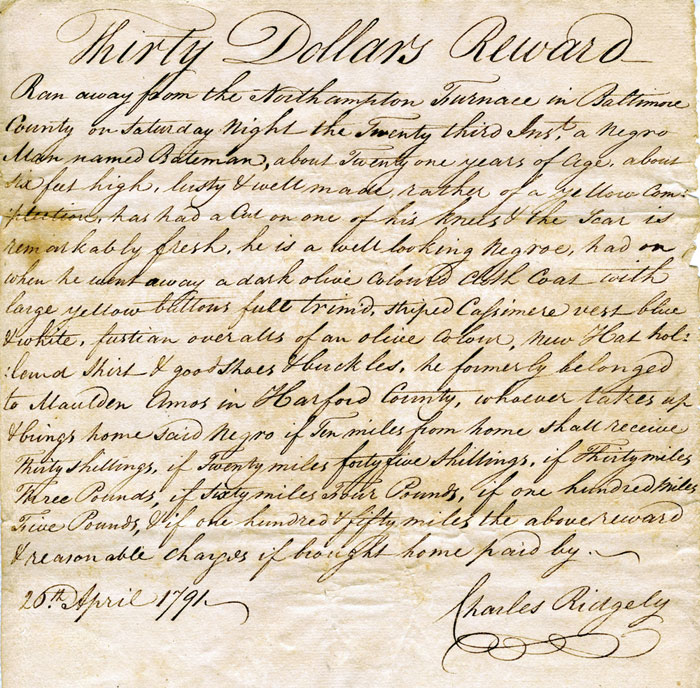 Thirty Dollars Reward
Ran away from the Northampton Furnace in Baltimore
County on Saturday Night the Twenty third Inst. a Negro
Man named Bateman, about Twenty one years of age, about
six feet high, lusty & well made, rather of a yellow Com-
plection, has had a Cut on one of his knees & the Scar is
remarkably fresh, he is a well looking Negroe, had on
when he went away a dark olive Coloured Cloth Coat with
large yellow buttons full trim'd, striped Cassimere vest blue
& white, fustian overalls of an olive Colour, New Hat hol:
:lownd Shirt & good Shoes & buckles, he formerly belonged
to Maulden Amos in Harford County, whoever takes up
& brings home said Negro if Ten miles from home shall receive
Thirty Shillings, if Twenty miles forty five Shillings, if Thirty miles
Three Pounds, if sixty miles Four Pounds, if one hundred Miles
Five Pounds, & if one hundred & fifty miles the above reward
& reasonable Charges if brought home paid by.
26th April 1791
Charles Ridgely